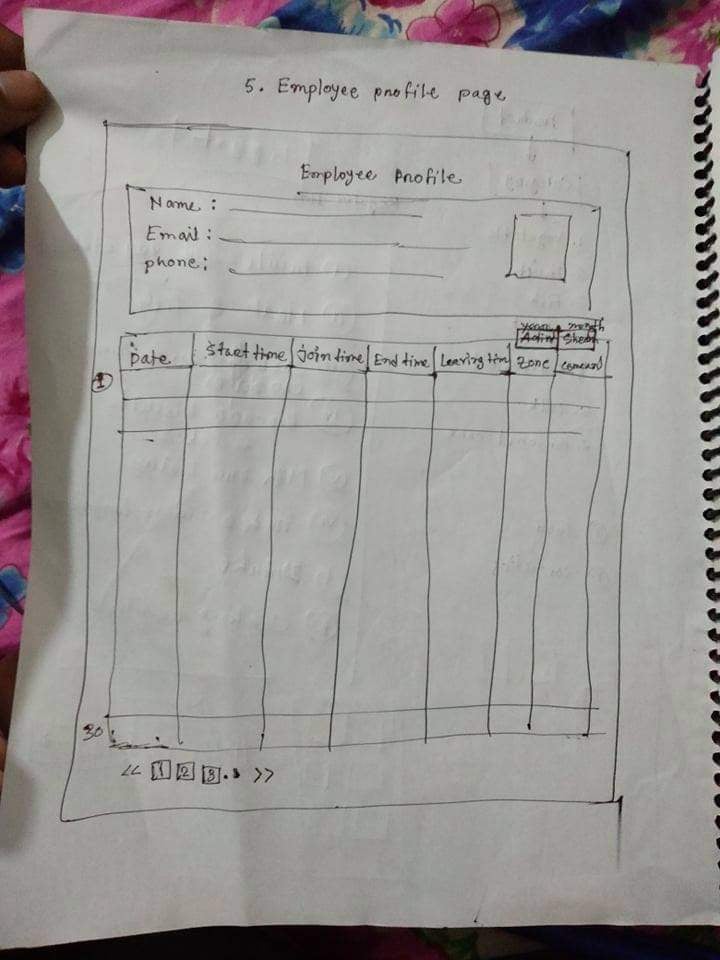 5. Employee profile page
Employee Profile
Name :
Email :
phone :
year month
Date Start time Join time End time Leaving tim Zone
1
30
<< 1 2 3 . . >>